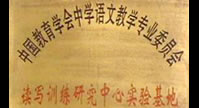 中国教育学会中学语文教学专业委员会
读写训练研究中心实验基地